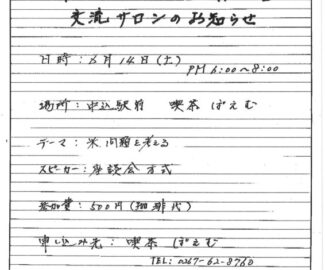 交流サロンのお知らせ
日時：6月14日(土)
PM 6:00〜8:00
場所：中込駅前 喫茶 ぽえむ
テーマ：米問題を考える
スピーカー：座談会方式
参加費：500円(珈琲代)
申し込み先：喫茶 ぽえむ
TEL：0267-62-8760